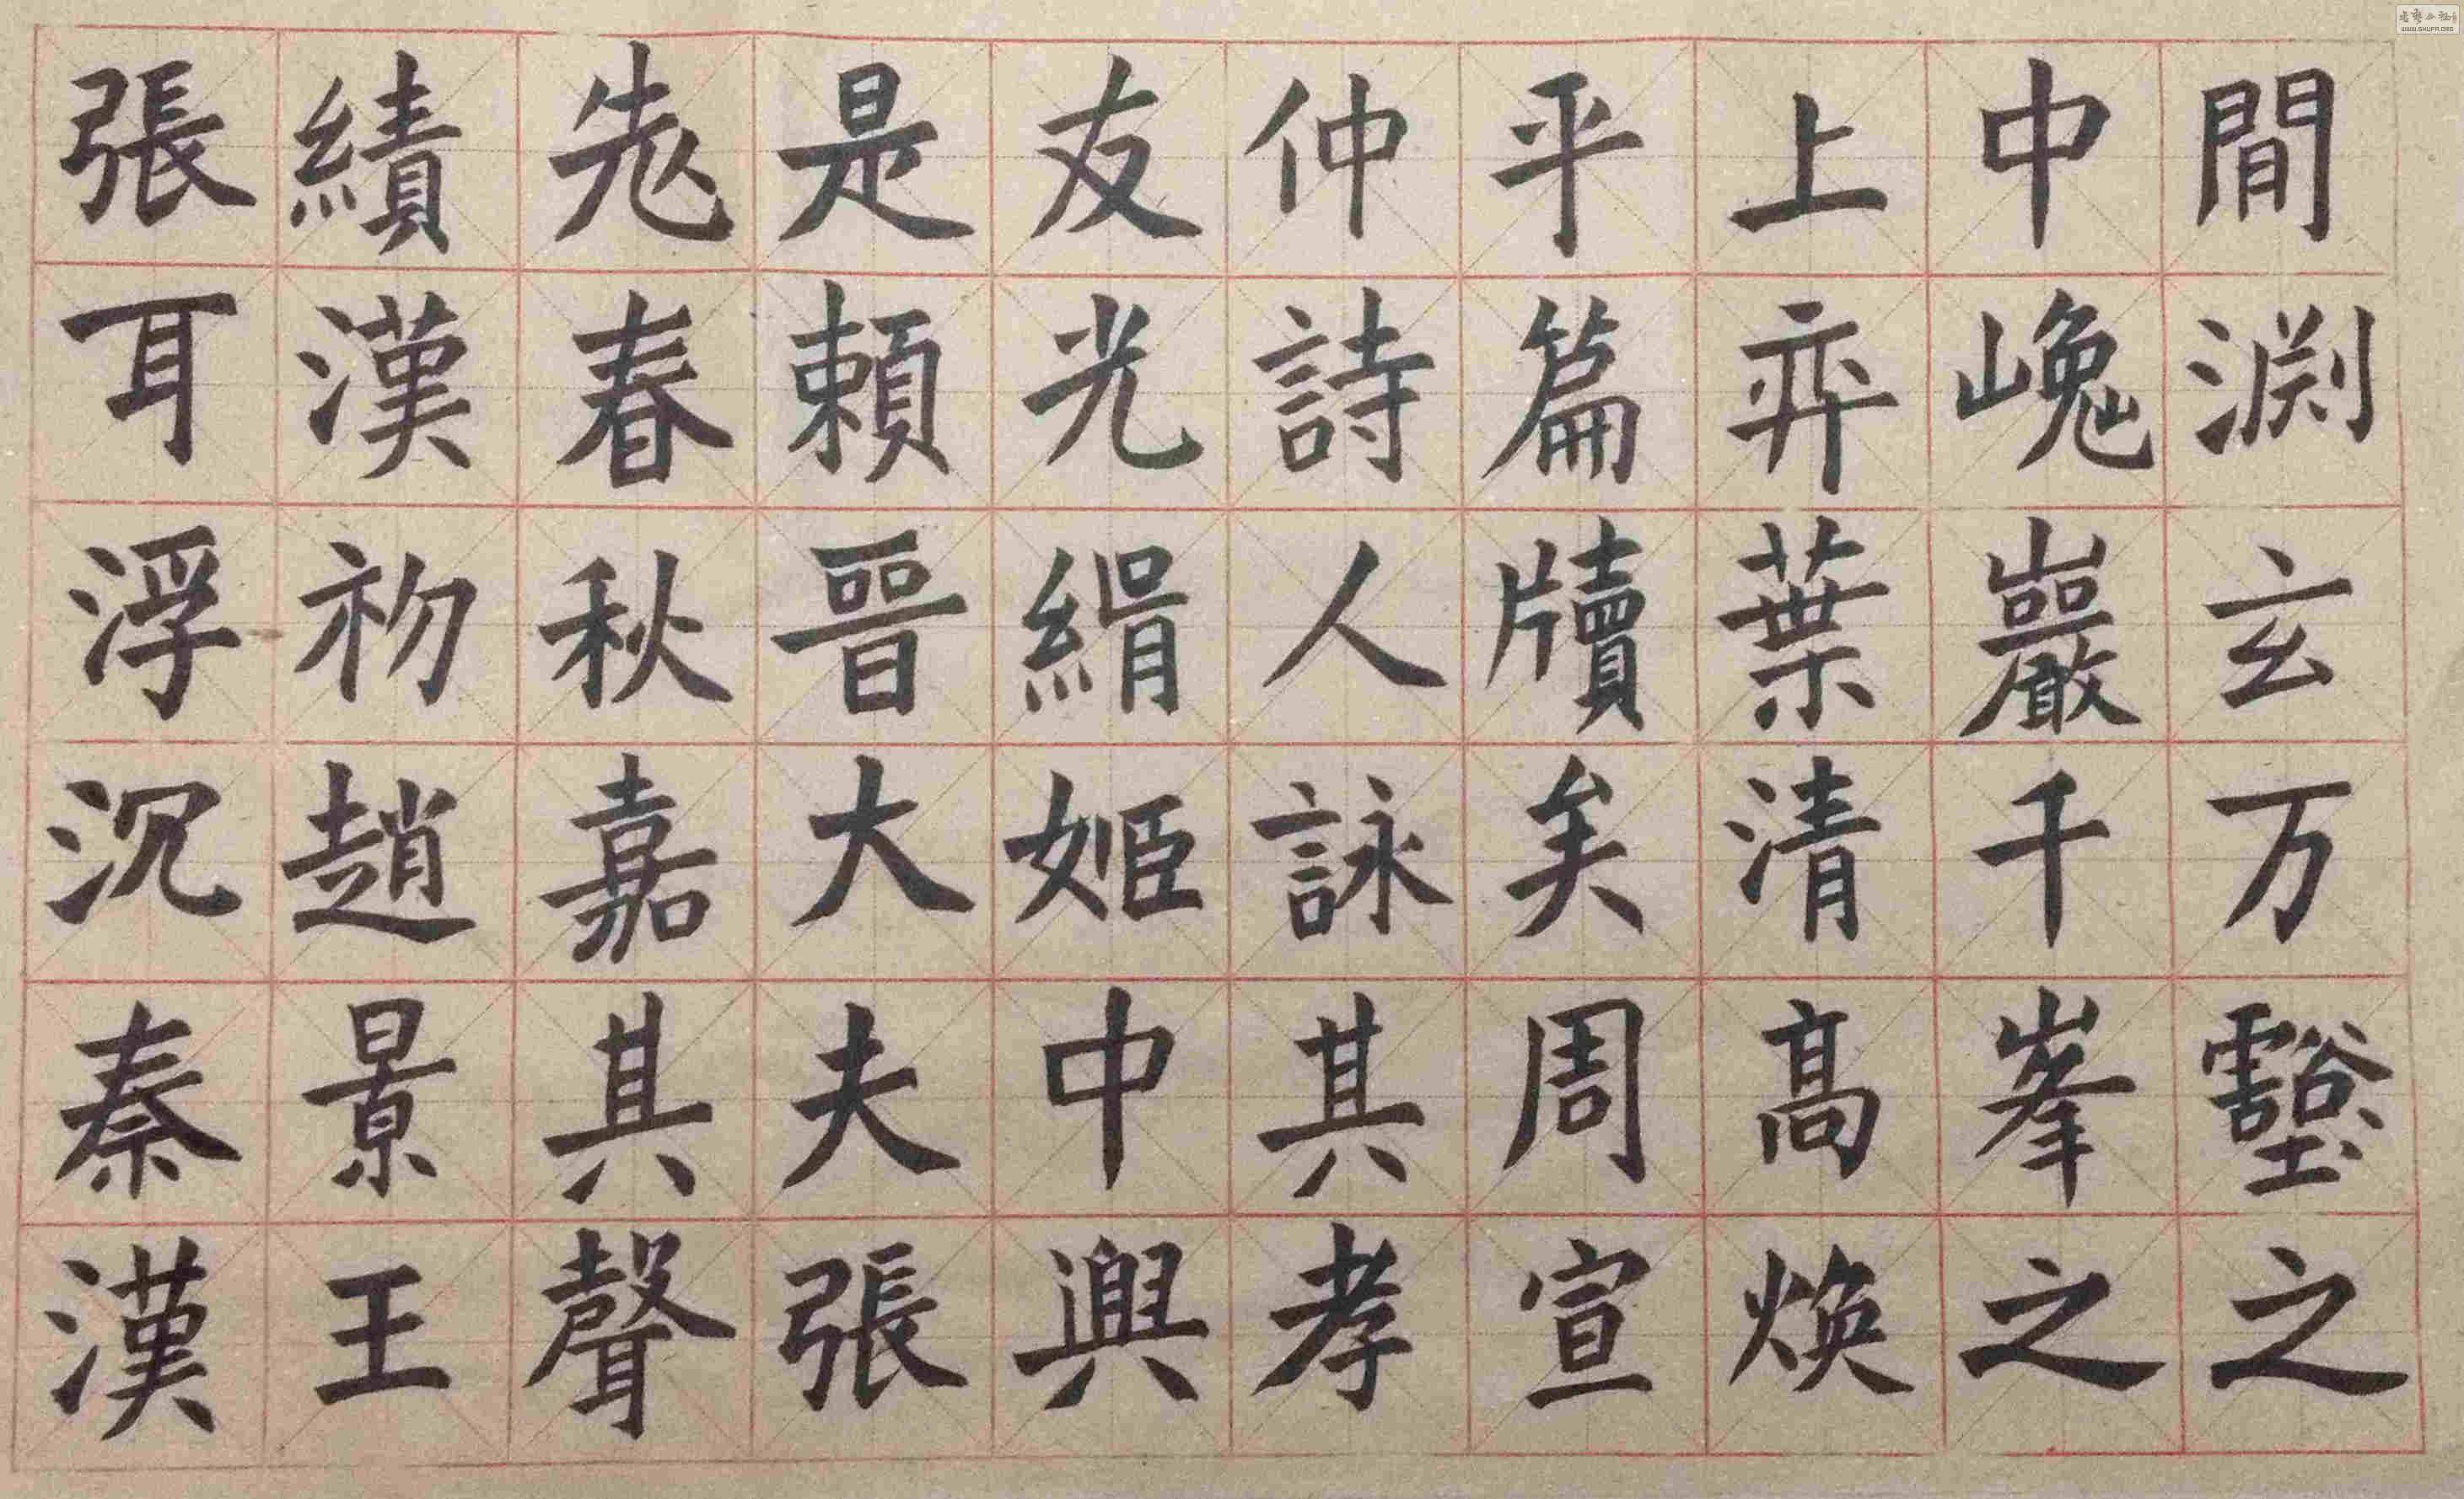 間渕玄万壑之
中嵬巖千峯之
上弈葉清高煥
平篇牘矣周宣
仲詩人詠其孝
友光緝姬中興
是賴晉大夫張
老春秋嘉其聲
績漢初趙景王
張耳浮沉秦漢
WWW.SHUFA.ORG